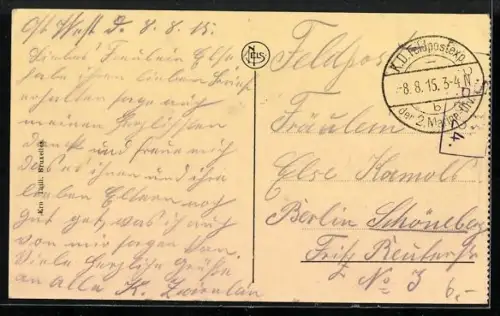 Ost West d. 8.8.15.
Liebes Fräulein Else
habe ihren lieben Brief
erhalten sage auch
meinen herzlichsten
Dank und freue mich
das es ihnen und ihre
lieben Eltern noch
gut get, was ich auch
von mir sagen kan.
Viele herzliche Grüße
an Alle K.
Ern. Thill, Bruxelles
NELS
Feldpost
Fräulein
Else Kamoll
Berlin Schöneberg
Fritz Reuterstr
No 3
6,-
K.D. Feldpostexp.
-8.8.15. 3-4 N.
b
der 2. Mar.
4.